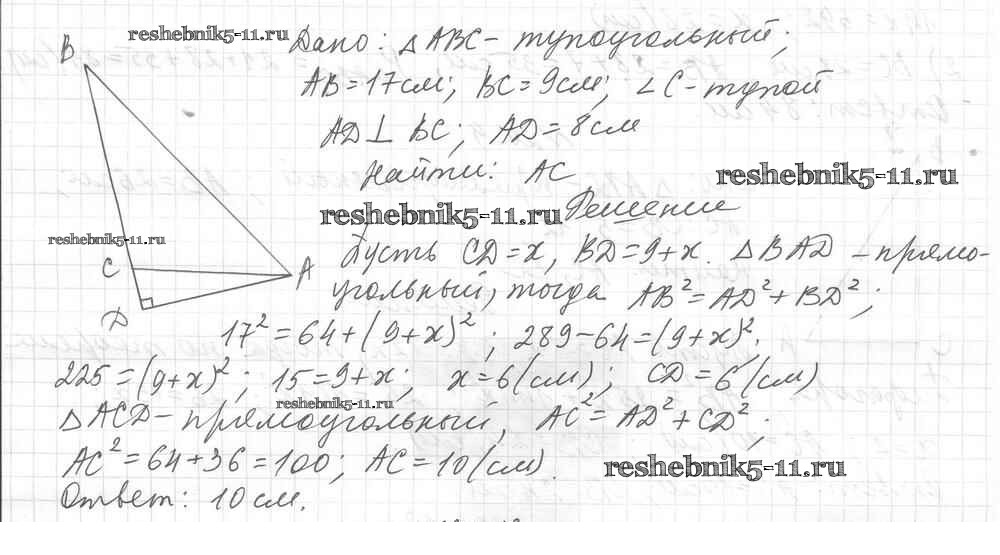 reshebnik5-11.ru
Дано: △ABC - тупоугольный;
B
AB = 17см; BC = 9см; ∠C - тупой
AD ⊥ BC; AD = 8см
Найти: AC
reshebnik5-11.ru
reshebnik5-11.ru Решение
reshebnik5-11.ru
Пусть CD = x, BD = 9 + x. △BAD - прямо-
C A
угольный, тогда AB² = AD² + BD²;
D
17² = 64 + (9 + x)²; 289 - 64 = (9 + x)².
225 = (9 + x)²; 15 = 9 + x; x = 6 (см); CD = 6 (см)
reshebnik5-11.ru
△ACD - прямоугольный, AC² = AD² + CD²;
AC² = 64 + 36 = 100; AC = 10 (см).
reshebnik5-11.ru
Ответ: 10 см.